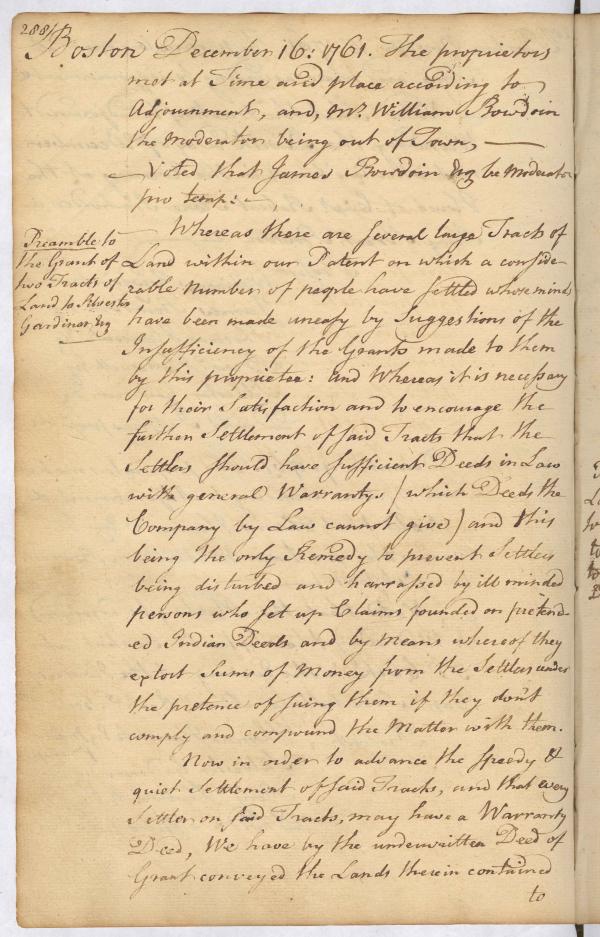 288/
Boston December 16: 1761. The proprietors
met at Time and place according to
Adjournment, and, Mr. William Bowdoin
the Moderator being out of Town, —
— Voted that James Bowdoin Esq be Moderator
pro temp: —
Preamble to
the Grant of
two Tracts of
Land to Silvester
Gardiner Esq
— Whereas there are several large Tracts of
Land within our Patent on which a conside-
rable Number of people have settled whose minds
have been made uneasy by Suggestions of the
Insufficiency of the Grants made to them
by this proprietee: and Whereas it is necessary
for their Satisfaction and to encourage the
further Settlement of said Tracts that the
Settlers should have sufficient Deeds in Law
with general Warrantys (which Deeds the
Company by Law cannot give) and this
being the only Remedy to prevent Settlers
being disturbed and harrassed by ill minded
persons who set up Claims founded on pretend-
ed Indian Deeds and by means whereof they
extort Sums of Money from the Settlers under
the pretence of suing them if they don't
comply and compound the Matter with them.
Now in order to advance the speedy &
quiet Settlement of said Tracts, and that every
Settler on said Tracts, may have a Warranty
Deed, We have by the underwritten Deed of
Grant conveyed the Lands therein contained
to